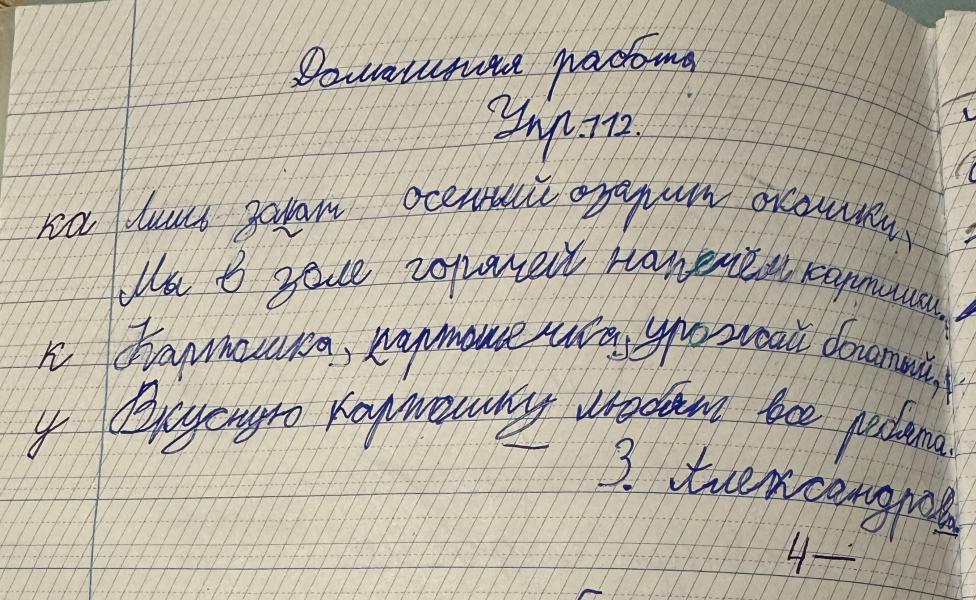 Домашняя работа
Упр. 112.
ка Лишь закат осенний озарит окошки,
Мы в золе горячей напечём картошки.
к Картошка, картошечка, урожай богатый,
у Вкусную картошку любят все ребята.
З. Александрова.
4—